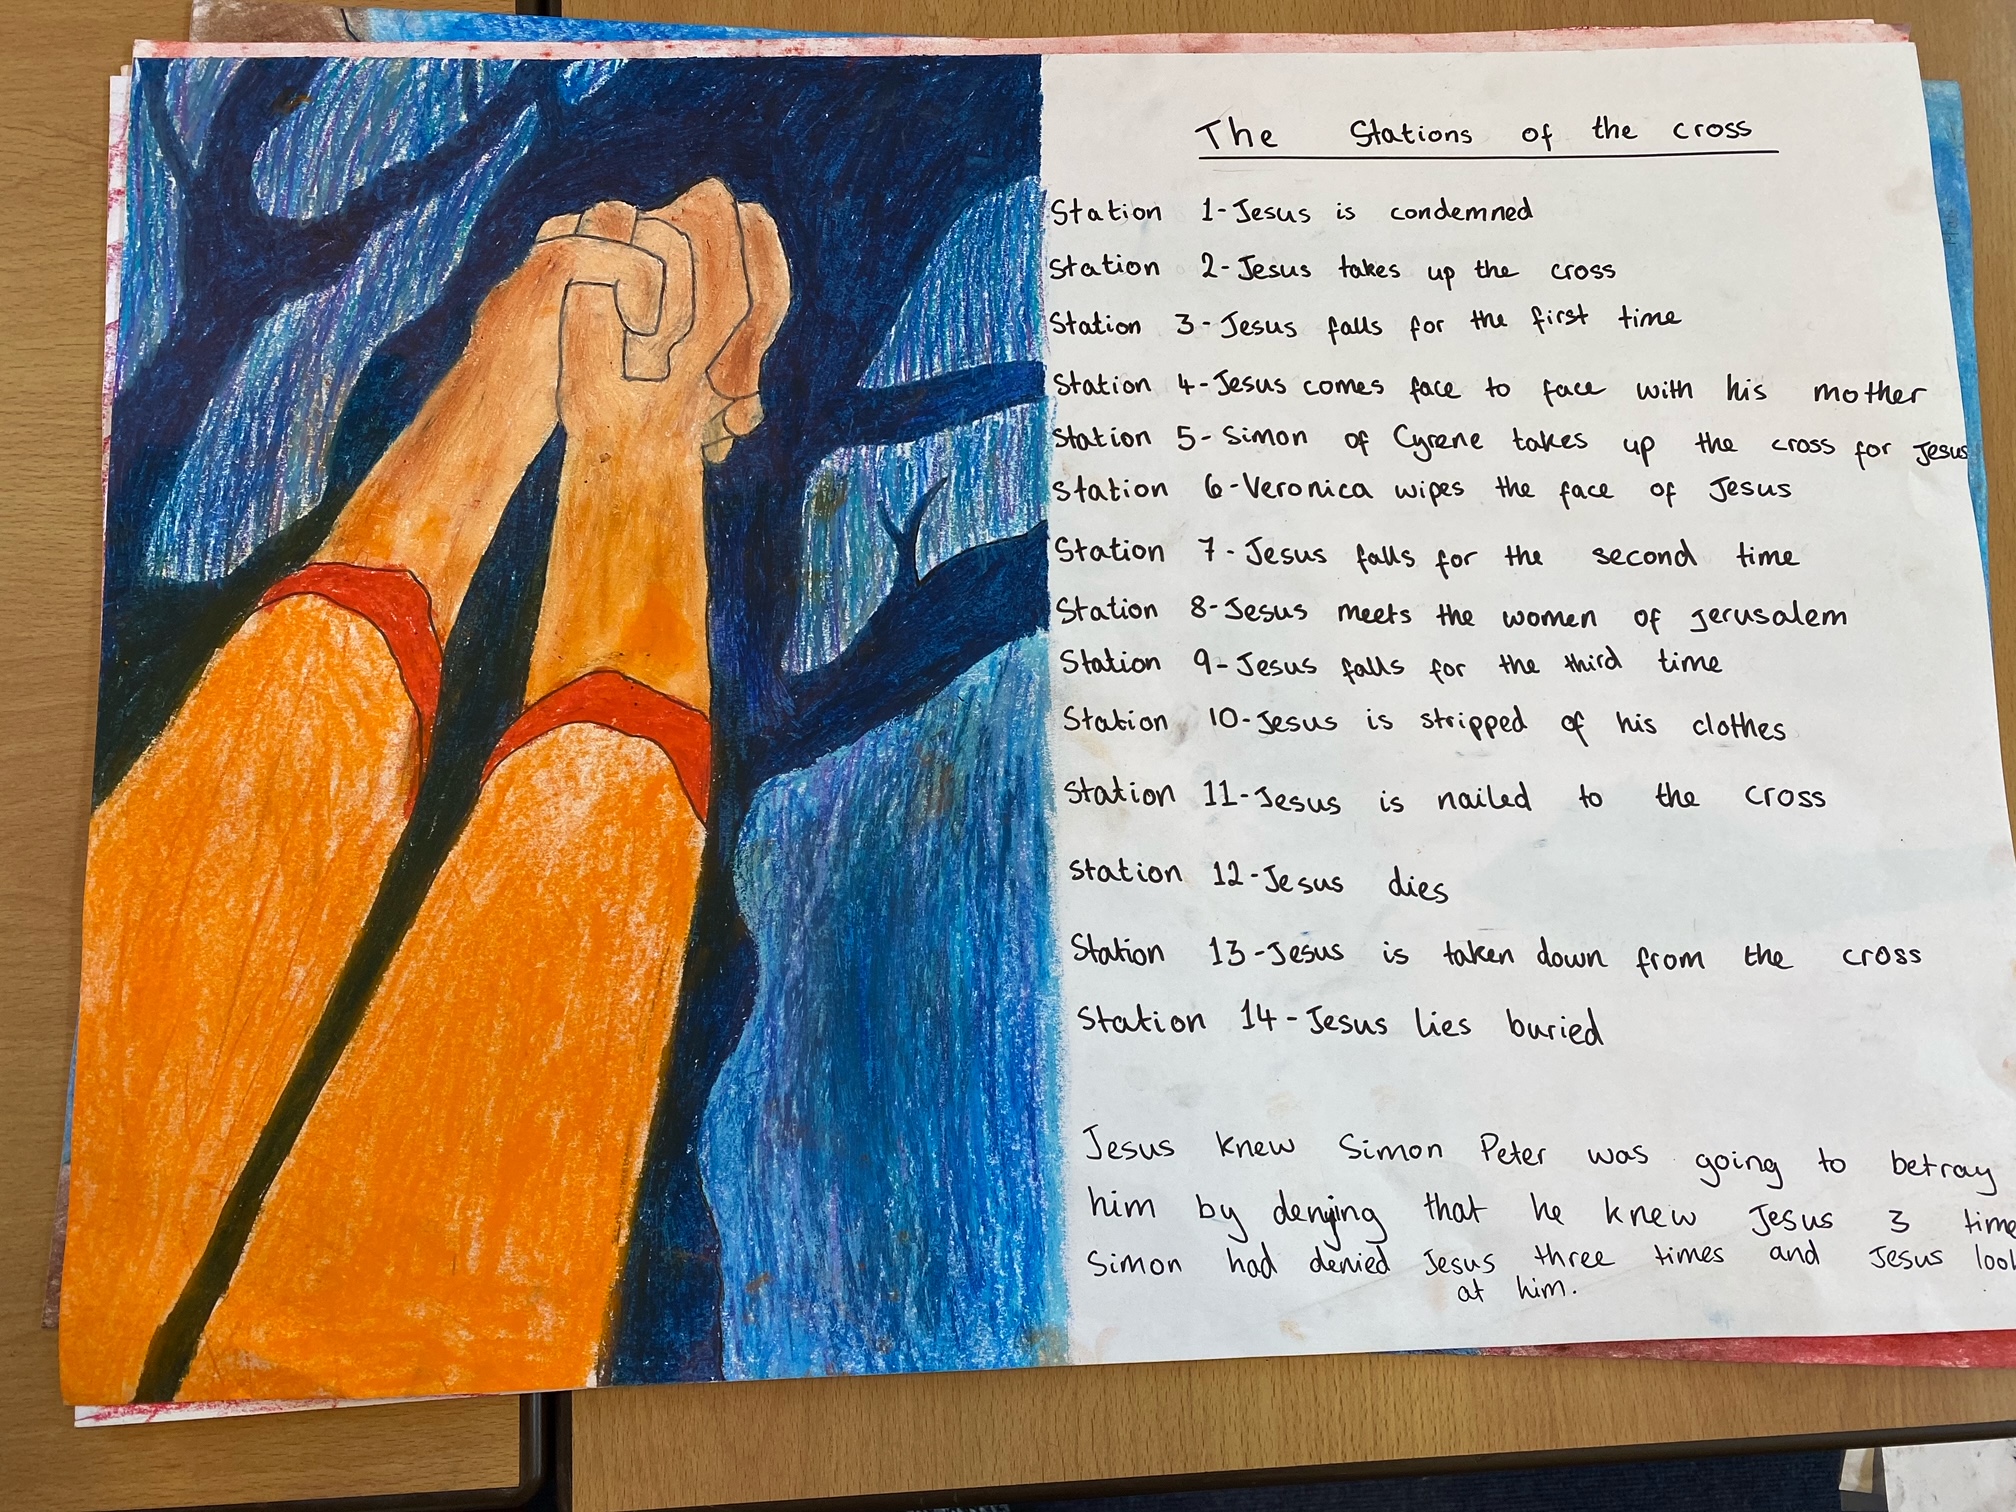 The Stations of the cross
Station 1-Jesus is condemned
Station 2-Jesus takes up the cross
Station 3-Jesus falls for the first time
Station 4-Jesus comes face to face with his mother
Station 5-Simon of Cyrene takes up the cross for Jesus
Station 6-Veronica wipes the face of Jesus
Station 7-Jesus falls for the second time
Station 8-Jesus meets the women of Jerusalem
Station 9-Jesus falls for the third time
Station 10-Jesus is stripped of his clothes
Station 11-Jesus is nailed to the cross
Station 12-Jesus dies
Station 13-Jesus is taken down from the cross
Station 14-Jesus lies buried
Jesus knew Simon Peter was going to betray
him by denying that he knew Jesus 3 time
Simon had denied Jesus three times and Jesus look
at him.